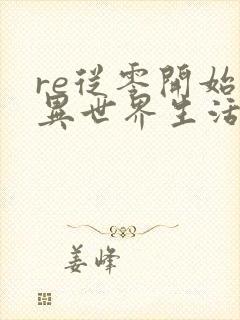 re從零開始
異世界生活
姜峰